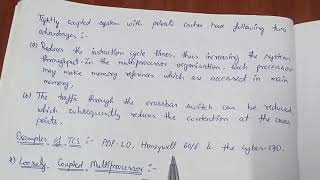 Tightly Coupled system with private caches have following two
advantages :-
(a) Reduces the instruction cycle times, thus increasing the system
throughput. In the multiprocessor organisation, each processor
may make memory references which are accessed in main
memory.
(b) The traffic through the crossbar switch can be reduced
which subsequently reduces the contention at the cross
points.
Examples of TCS :- PDP-10, Honeywell 60/6 & the cyber-170.
2) Loosely Coupled Multiprocessor :-